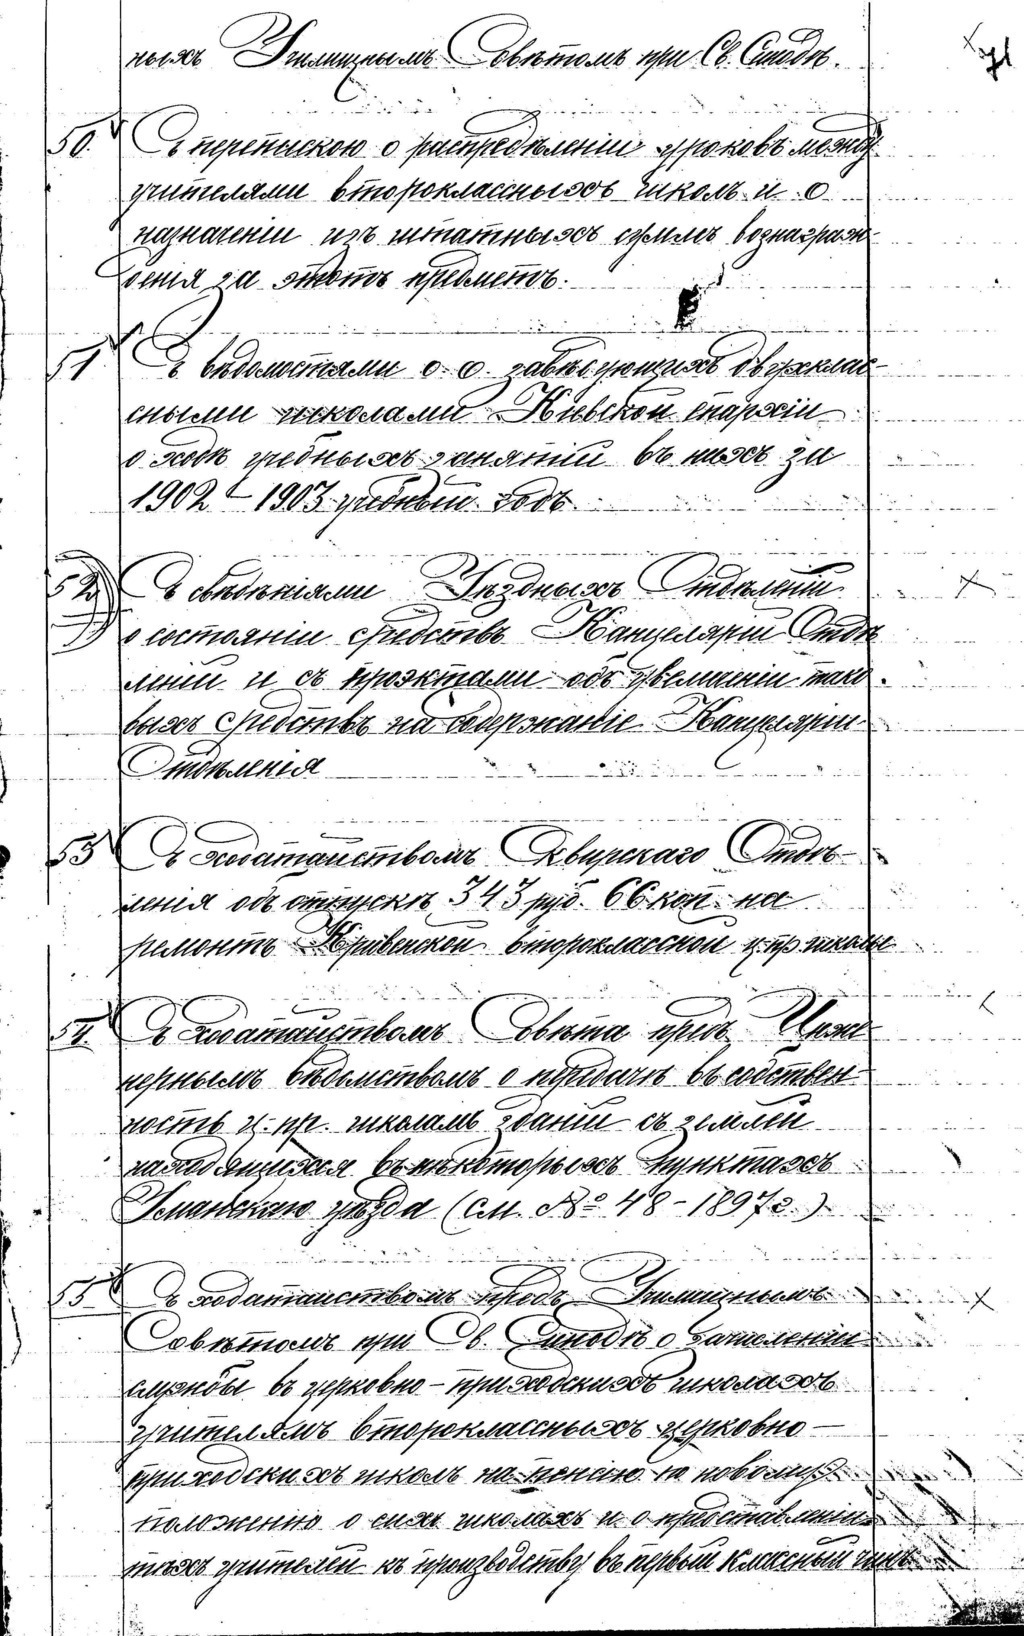 ныхъ Училищнымъ Совѣтомъ при Св. Синодѣ.
50. Съ перепискою о распредѣленіи уроковъ между
учителями второклассныхъ школъ и о
назначеніи изъ штатныхъ суммъ вознаграж-
денія за этотъ предметъ.
51 Съ вѣдомостями о. о. завѣдующихъ двухклас-
сными школами Кіевской епархіи
о ходѣ учебныхъ занятій въ нихъ за
1902 - 1903 учебный годъ.
52 Съ свѣдѣніями Уѣздныхъ Отдѣленій
о состояніи средствъ Канцеляріи Отдѣ
леній и съ проэктами объ увеличеніи тако
выхъ средствъ на содержаніе Канцеляріи
Отдѣленія
53 Съ ходатайствомъ Сквирскаго Отдѣ-
ленія объ отпускѣ 343 руб. 66 коп. на
ремонтъ Кривенской второклассной ц. пр. школы
54. Съ ходатайствомъ Совѣта предъ Инже
нернымъ вѣдомствомъ о передачѣ въ собствен
ность ц. пр. школамъ зданій съ землей
находящихся въ нѣкоторыхъ пунктахъ
Уманскаго уѣзда (см. № 48 - 1897 г.)
55. Съ ходатайствомъ предъ Училищнымъ
Совѣтомъ при Св. Синодѣ о зачисленіи
службы въ церковно - приходскихъ школахъ
учителямъ второклассныхъ церковно -
приходскихъ школъ на пенсію по новому
положенію о сихъ школахъ и о представленіи
тѣхъ учителей къ производству въ первый классный чинъ